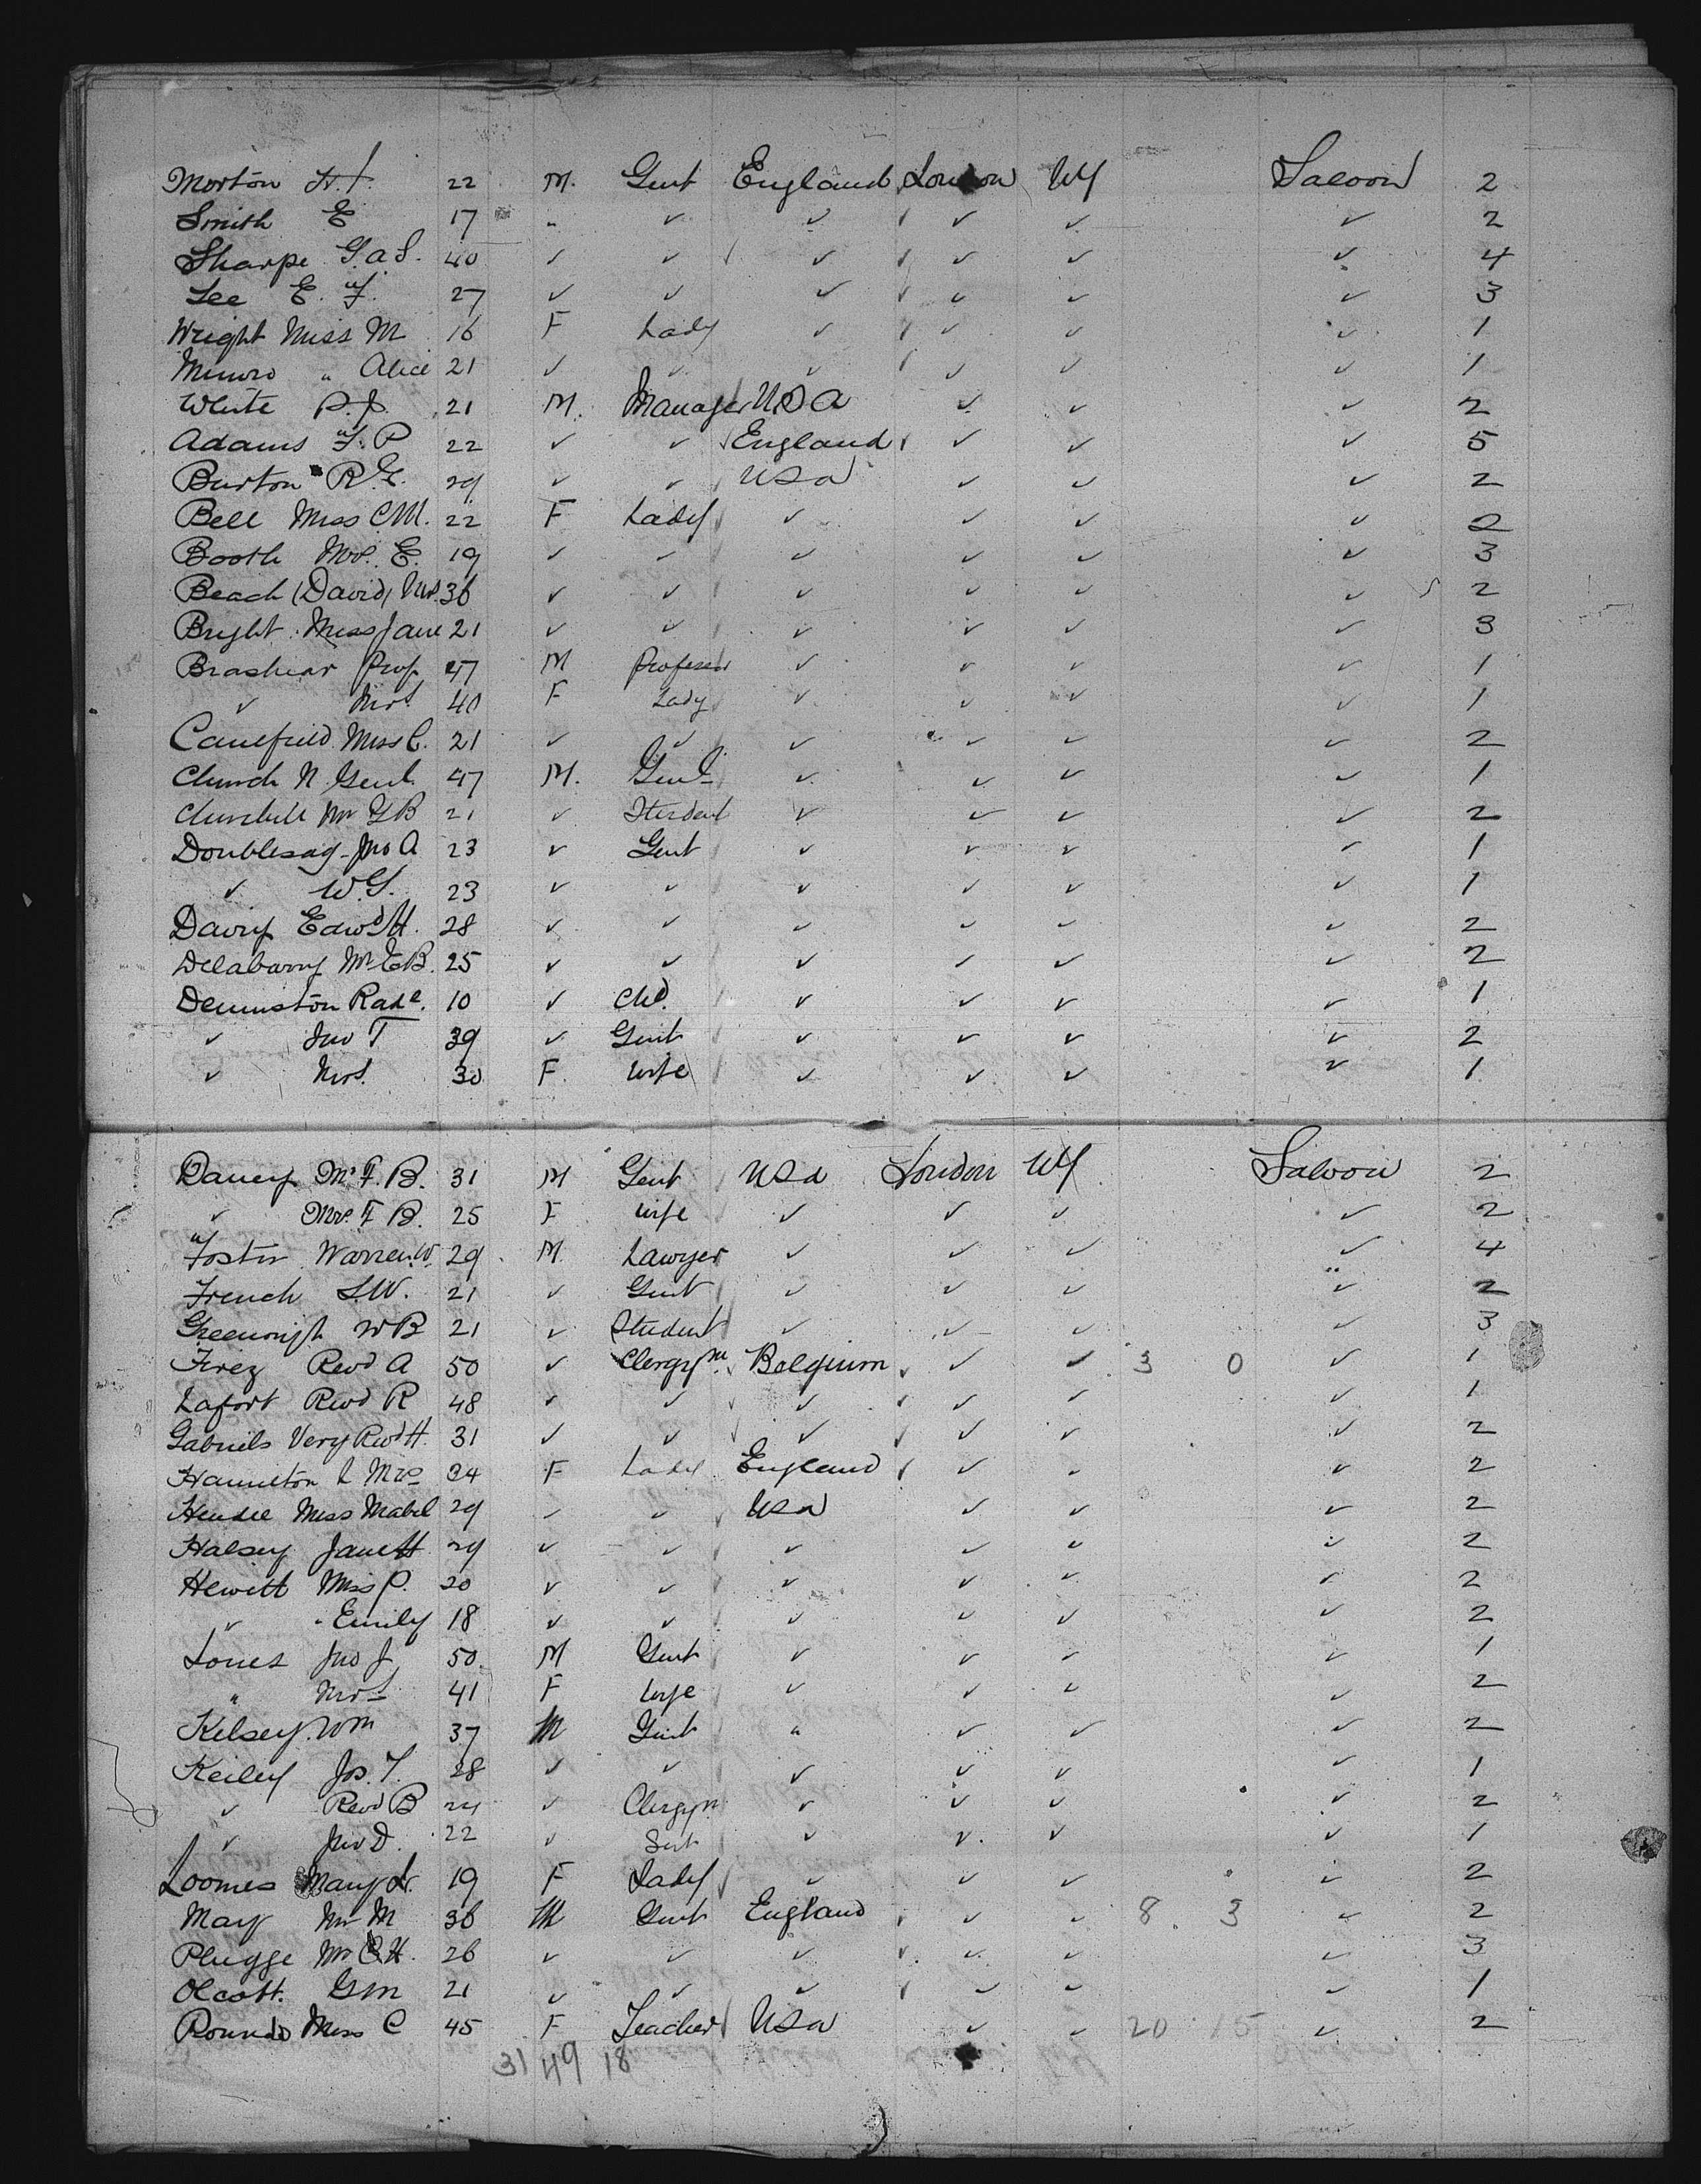 Morton H. J. 22 M. Gent England London NY Saloon 2
Smith E 17 " ✓ ✓ ✓ ✓ ✓ 2
Sharpe G. a S. 40 ✓ ✓ ✓ ✓ ✓ ✓ 4
Lee E. F. 27 ✓ ✓ ✓ ✓ ✓ ✓ 3
Wright Miss M 16 F Lady ✓ ✓ ✓ ✓ 1
Munro " Alice 21 ✓ ✓ ✓ ✓ ✓ ✓ 1
White P. J. 21 M. Manager USA ✓ ✓ ✓ 2
Adams F. P 22 ✓ ✓ England ✓ ✓ ✓ 5
Burton R. E. 29 ✓ ✓ USA ✓ ✓ ✓ 2
Bell Miss C M. 22 F Lady ✓ ✓ ✓ ✓ 2
Booth Mrs. E. 19 ✓ ✓ ✓ ✓ ✓ ✓ 3
Beach (David) Mrs. 36 ✓ ✓ ✓ ✓ ✓ ✓ 2
Bright Miss Jane 21 ✓ ✓ ✓ ✓ ✓ ✓ 3
Brashear Prof 47 M Professor ✓ ✓ ✓ ✓ 1
✓ Mrs 40 F Lady ✓ ✓ ✓ ✓ 1
Caulfield Miss C. 21 ✓ ✓ ✓ ✓ ✓ ✓ 2
Church N Genl. 47 M. Gent ✓ ✓ ✓ ✓ 1
Churchill Mr G B 21 ✓ Student ✓ ✓ ✓ ✓ 2
Jno A 23 ✓ Gent ✓ ✓ ✓ ✓ 1
✓ W. G. 23 ✓ ✓ ✓ ✓ ✓ ✓ 1
Edwd H. 28 ✓ ✓ ✓ ✓ ✓ ✓ 2
Delabarry Mr E B. 25 ✓ ✓ ✓ ✓ ✓ ✓ 2
Denniston 10 ✓ Chd. ✓ ✓ ✓ ✓ 1
✓ Jno T 39 ✓ Gent ✓ ✓ ✓ ✓ 2
✓ Mrs. 30 F. Wife ✓ ✓ ✓ ✓ 1
Mr F. B. 31 M Gent USA London NY Saloon 2
✓ Mrs. F B. 25 F Wife ✓ ✓ ✓ ✓ 2
Foster Warren W. 29 M. Lawyer ✓ ✓ ✓ ✓ 4
French S. W. 21 ✓ Gent ✓ ✓ ✓ ✓ 2
Greenough W B 21 ✓ Student ✓ ✓ ✓ ✓ 3
Revd A 50 ✓ Clergym. Belgium ✓ ✓ 3 0 ✓ 1
Lafort Revd R 48 ✓ ✓ ✓ ✓ ✓ ✓ 1
Gabriels Very Revd H. 31 ✓ ✓ ✓ ✓ ✓ ✓ 2
Hamilton L Mrs 34 F Lady England ✓ ✓ ✓ 2
Miss Mabel 29 ✓ ✓ USA ✓ ✓ ✓ 2
Halsey Jane H 29 ✓ ✓ ✓ ✓ ✓ ✓ 2
Hewitt Miss P. 20 ✓ ✓ ✓ ✓ ✓ ✓ 2
✓ " Emily 18 ✓ ✓ ✓ ✓ ✓ ✓ 2
Jones Jno J 50. M Gent ✓ ✓ ✓ ✓ 1
" Mrs 41 F Wife ✓ ✓ ✓ ✓ 2
Kelsey Wm 37 M Gent " ✓ ✓ ✓ 2
Keiley Jos. T. 28 ✓ ✓ ✓ ✓ ✓ ✓ 1
✓ Revd B 24 ✓ Clergym ✓ ✓ ✓ ✓ 2
✓ Jno D. 22 ✓ Gent ✓ ✓ ✓ ✓ 1
Loomes Mary L. 19 F Lady ✓ ✓ ✓ ✓ 2
May Mr M 36 M Gent England ✓ ✓ 8 . 3 ✓ 2
Plugge Mr C H. 26 ✓ ✓ ✓ ✓ ✓ ✓ 3
Olcott. G M 21 ✓ ✓ ✓ ✓ ✓ ✓ 1
Rounds Miss C 45 F Teacher USA ✓ ✓ 20 15 ✓ 2
31 49 18